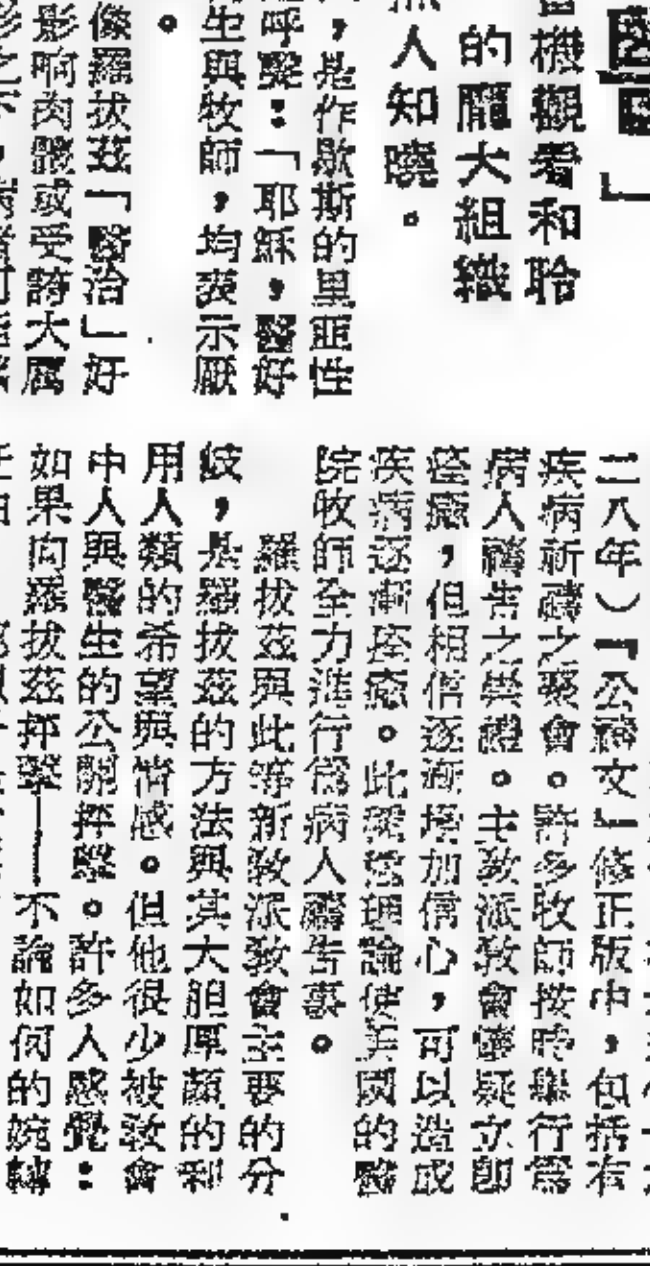 當機觀看和聆
的龐大組織
無人知曉。
,是作歇斯的里亞性
呼聲:「耶穌,醫好
生與牧師,均表示厭
。
像羅拔茲「醫治」好
影响肉體或受誇大屬
影之下,病者可能
二八年)『公禱文』修正版中,包括有
疾病祈禱之聚會。許多牧師按時舉行為
病人禱告之崇禮。主教派教會懷疑立即
痊癒,但相信逐漸增加信心,可以造成
疾病逐漸痊癒。此種理論使美國的醫
院牧師全力進行為病人禱告事。
羅拔茲與此等新教派教會主要的分
歧,是羅拔茲的方法與其大胆厚顏的利
用人類的希望與情感。但他很少被教會
中人與醫生的公開抨擊。許多人感覺:
如果向羅拔茲抨擊——不論如何的婉轉